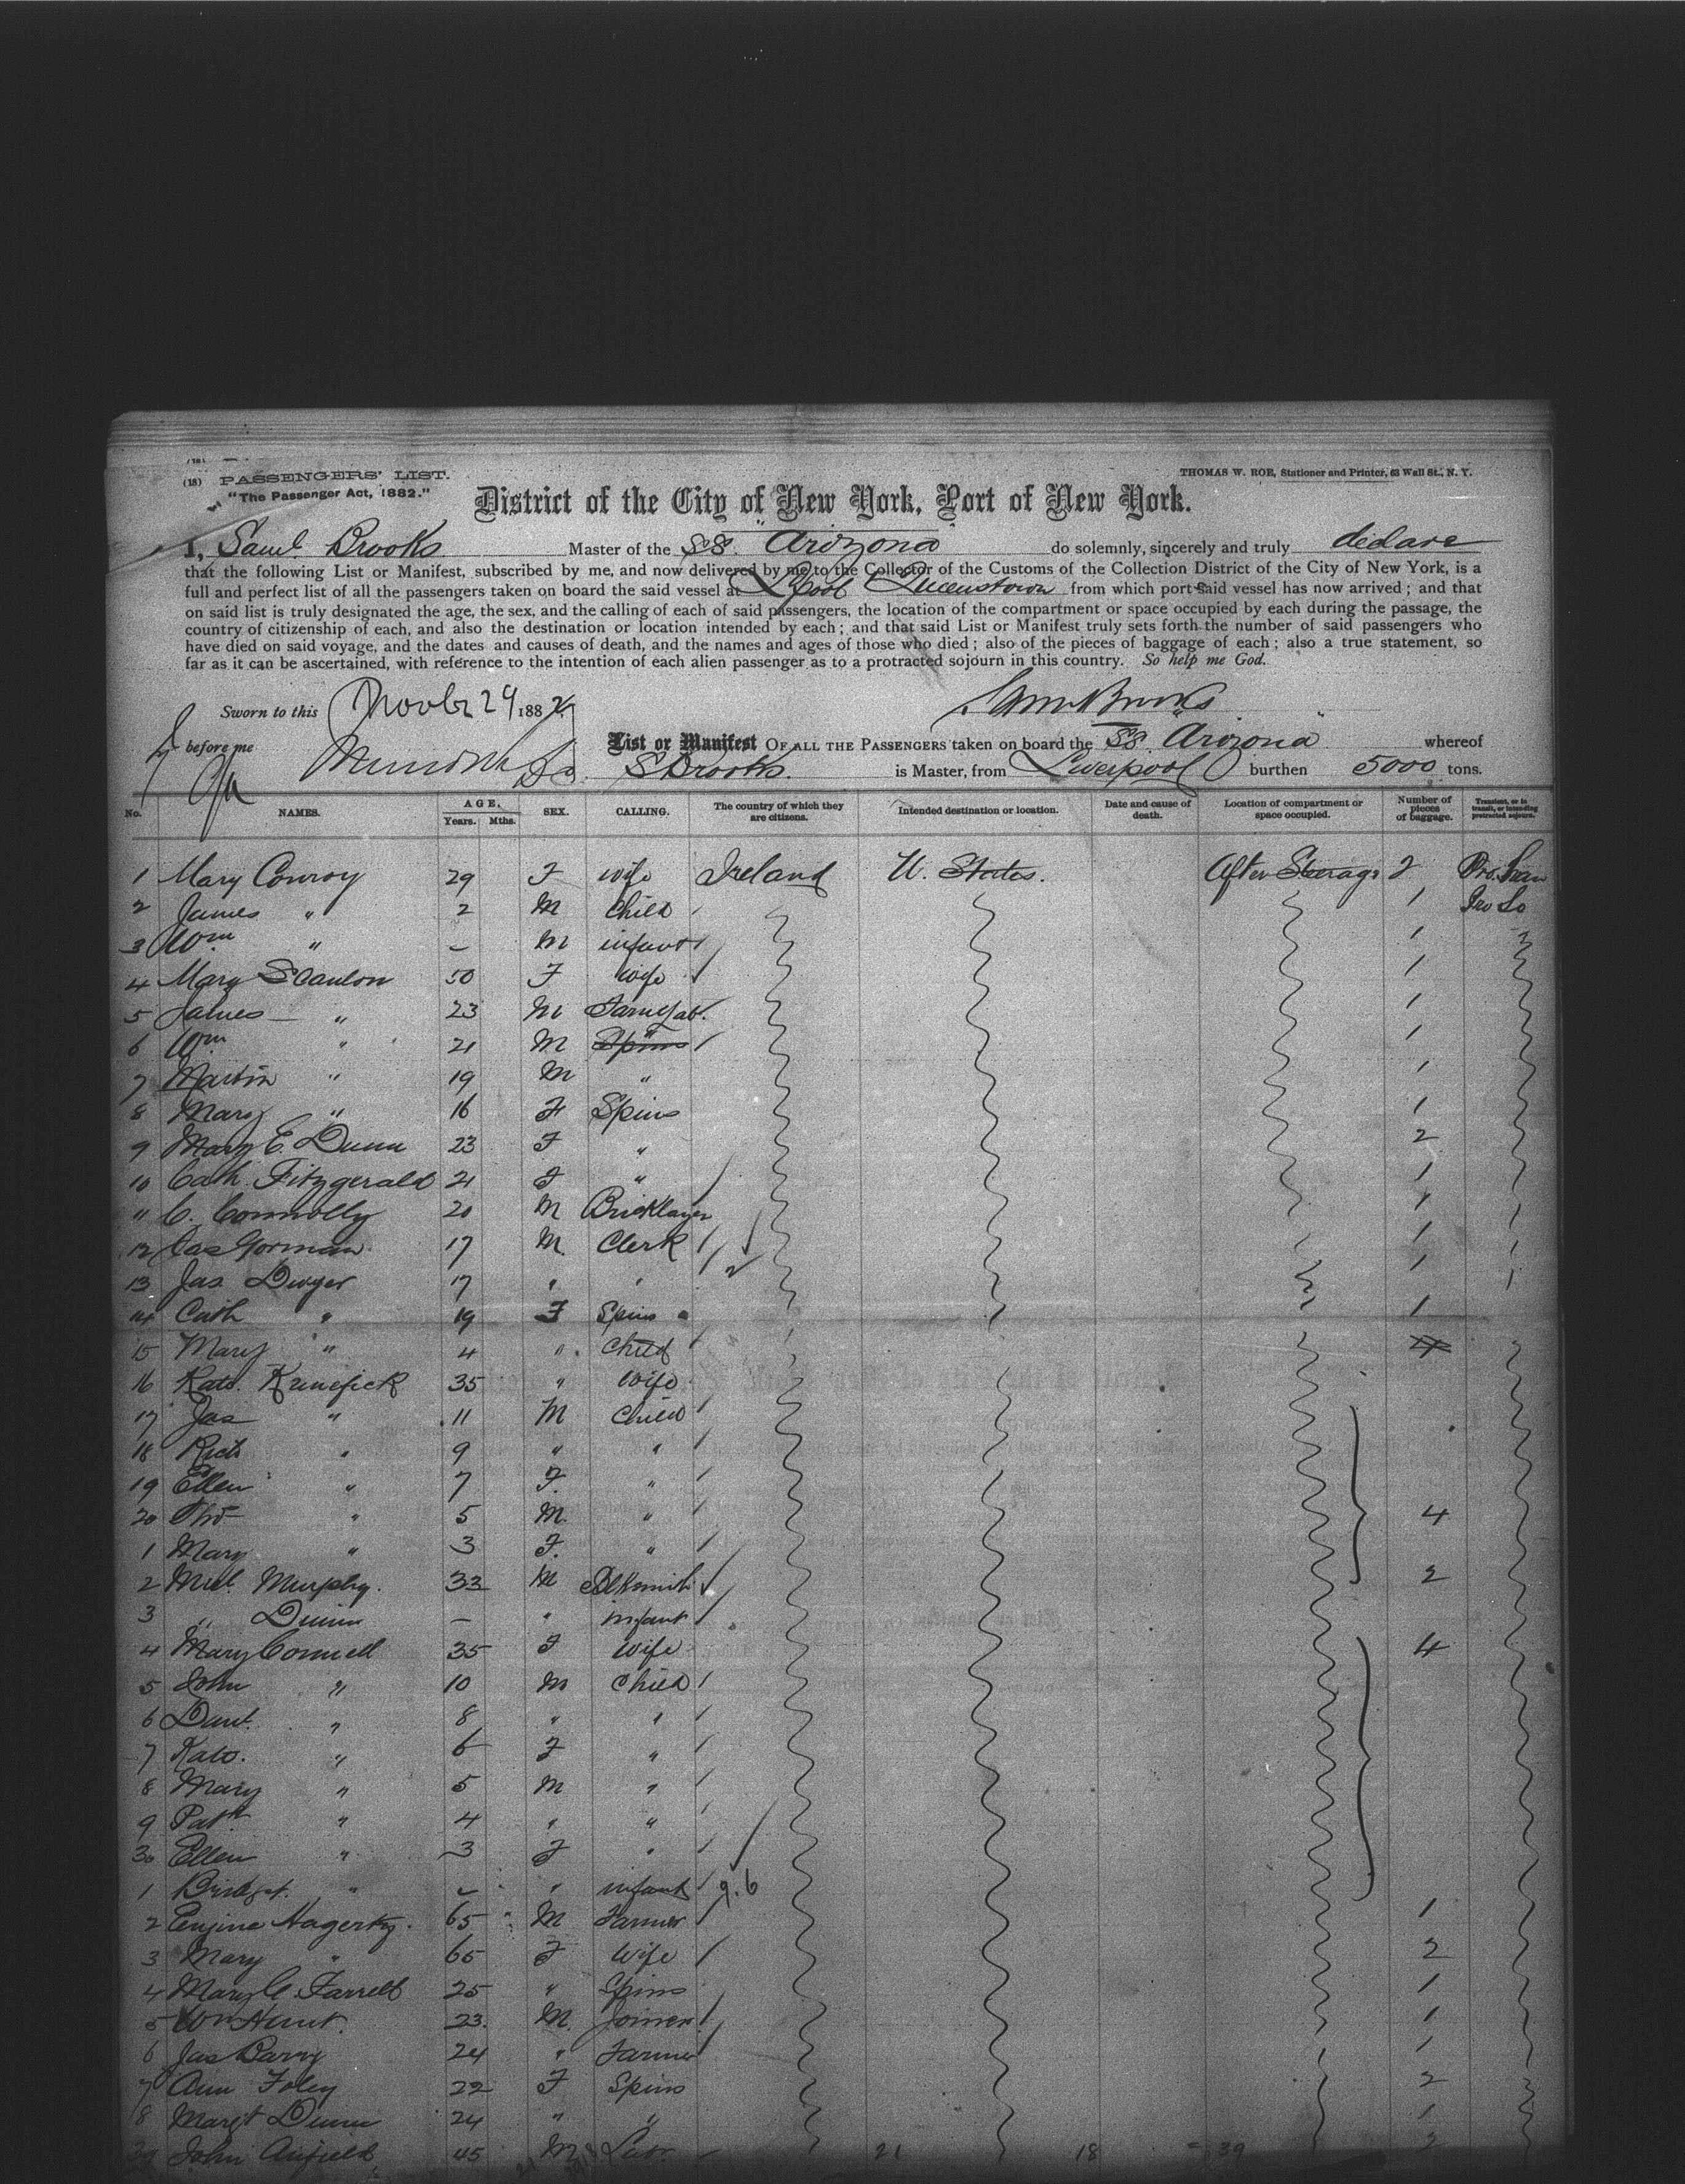 (18) PASSENGERS' LIST.
"The Passenger Act, 1882."
THOMAS W. ROE, Stationer and Printer, 63 Wall St., N. Y.
District of the City of New York, Port of New York.
I, Saml Brooks Master of the SS. Arizona do solemnly, sincerely and truly declare
that the following List or Manifest, subscribed by me, and now delivered by me to the Collector of the Customs of the Collection District of the City of New York, is a
full and perfect list of all the passengers taken on board the said vessel at L'Pool Queenstown from which port said vessel has now arrived; and that
on said list is truly designated the age, the sex, and the calling of each of said passengers, the location of the compartment or space occupied by each during the passage, the
country of citizenship of each, and also the destination or location intended by each; and that said List or Manifest truly sets forth the number of said passengers who
have died on said voyage, and the dates and causes of death, and the names and ages of those who died; also of the pieces of baggage of each; also a true statement, so
far as it can be ascertained, with reference to the intention of each alien passenger as to a protracted sojourn in this country. So help me God.
Sworn to this Novbr 29 188
Saml Brooks
before me
List or Manifest OF ALL THE PASSENGERS taken on board the SS. Arizona whereof
S Brooks. is Master, from Liverpool burthen 5000 tons.
No. NAMES. AGE. Years. Mths. SEX. CALLING. The country of which they are citizens. Intended destination or location. Date and cause of death. Location of compartment or space occupied. Number of pieces of baggage. Transient, or in transit, or intending protracted sojourn.
1 Mary Conroy 29 F wife Ireland U. States. After Steerage 2 Pro.
2 James " 2 M Child 1
3 Wm " – M infant 1
4 Mary Scanlon 50 F wife 1
5 James " 23 M Farm Lab. 1
6 Wm " 21 M Spins " 1
7 Martin " 19 M " 1
8 Mary " 16 F Spins 1
9 Mary E. Dunn 23 F " 2
10 Cath. Fitzgerald 21 F " 1
" C. Connolly 20 M Bricklayer 1
12 Jas Gorman 17 M. Clerk 1
13 Jas Dwyer 17 " " 1
14 Cath " 19 F Spins 1
15 Mary " 4 " Child
16 Kate. Kenefick 35 " Wife
17 Jas " 11 M Child
18 Rich " 9 " "
19 Ellen " 7 F. "
20 Tho " 5 M. " 4
1 Mary " 3 F. "
2 Micl. Murphy. 33 M Blksmith 2
3 " Dunn – " infant
4 Mary Connell 35 F Wife 4
5 John " 10 M Child
6 Danl. " 8 " "
7 Kate. " 6 F "
8 Mary " 5 M "
9 Patk " 4 " "
30 Ellen " 3 F "
1 Bridget. " – " infant 9.6
2 Eugine Hagerty. 65 M Farmer 1
3 Mary " 65 F Wife 2
4 Mary C. Farrell 25 " Spins 1
5 Wm Hunt. 23. M. Joiner 1
6 Jas Barry 24 " Farmer 1
7 Ann Foley 22 F Spins 2
8 Margt Dunn 24 " " 1
39 John Anfield 45 M Labr. 2
21 18 = 39